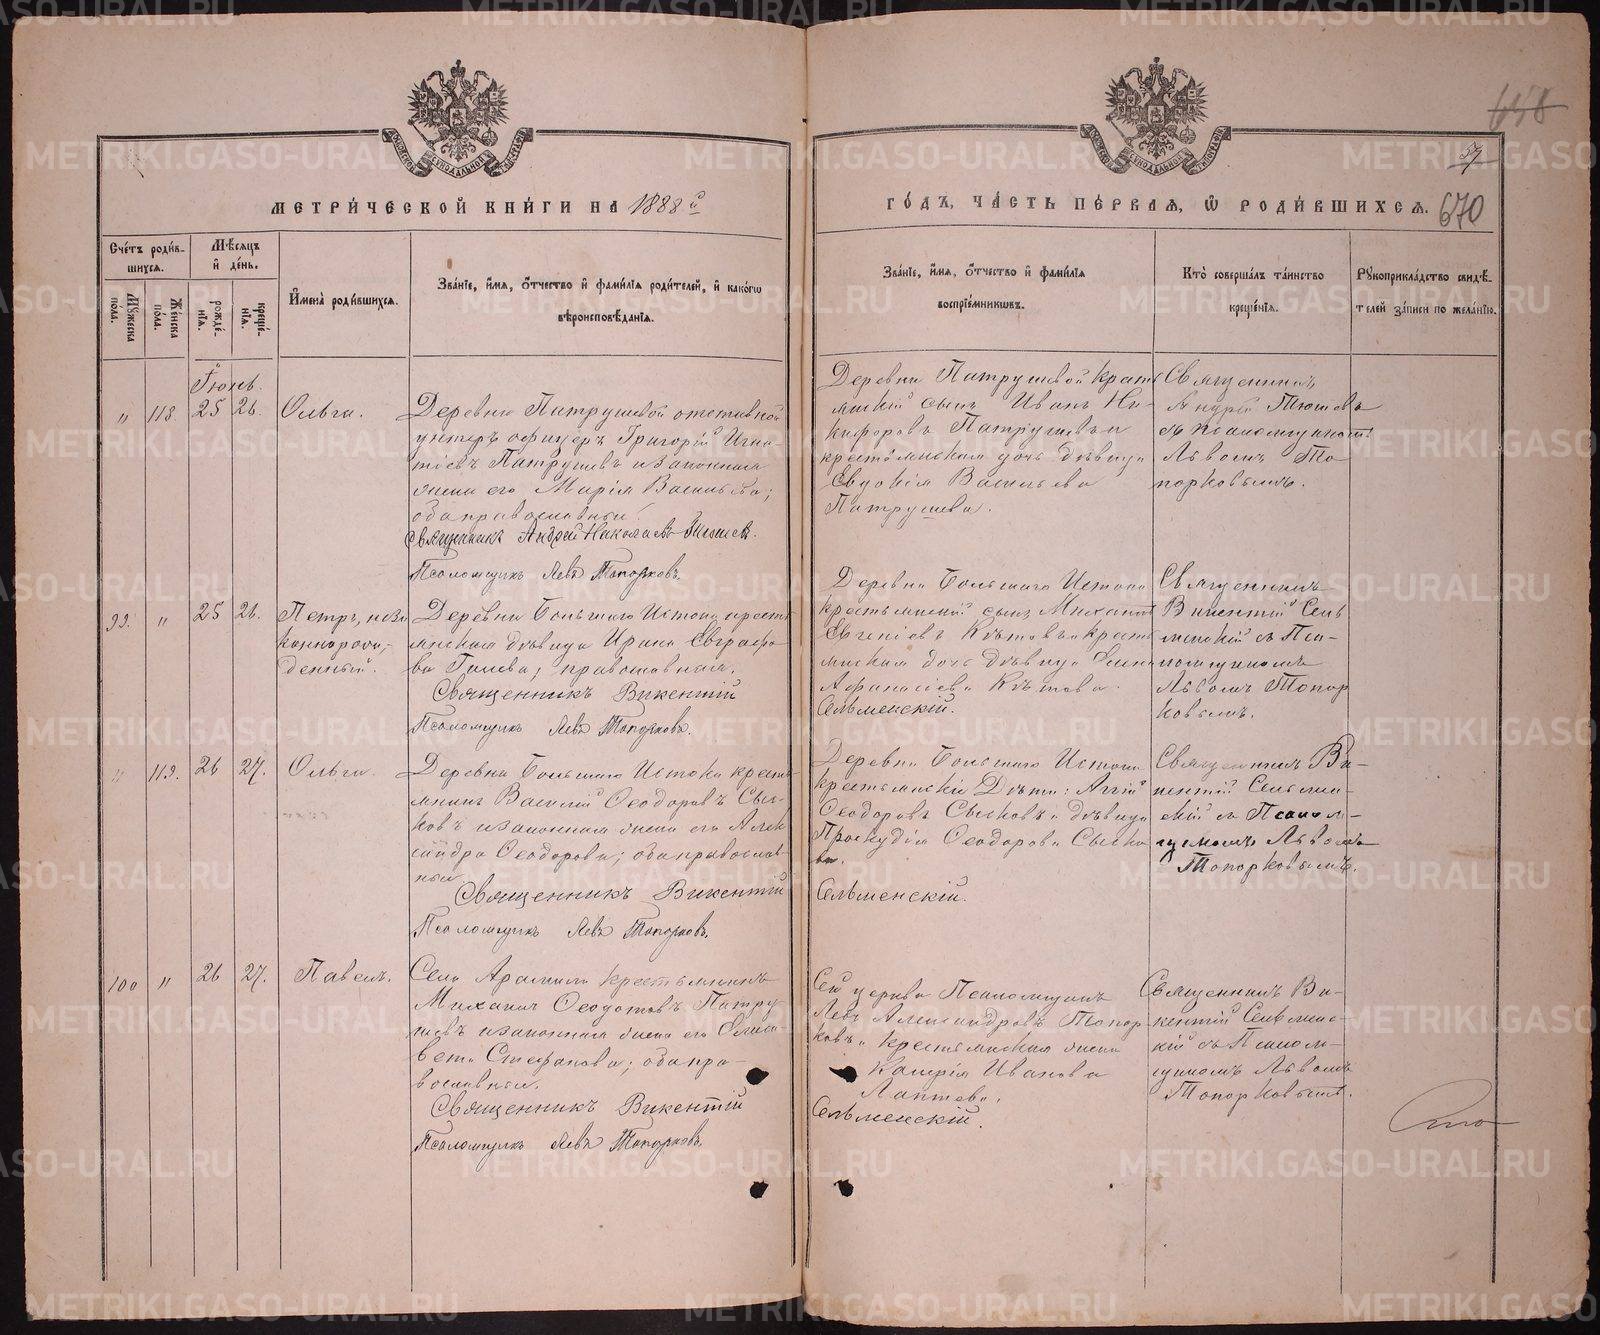 648
57
670
МЕТРИ́ЧЕСКОЙ КНИ́ГИ НА 1888 й
ГО́ДЪ, ЧА́СТЬ ПЕ́РВАЯ, Ѡ РОДИ́ВШИХСЯ.
Сче́тъ роди́в-
шихся.
Мꙋ́жеска пола.
Же́нска пола.
Мѣ́сяцъ
и҆ де́нь.
рожде́-
нїя.
креще́-
нїя.
И҆мена̀ роди́вшихся.
Зва́нїе, и҆́мя, ѻ҆́тчество и҆ фами́лїя роди́телей, и҆ како́гѡ
вѣроисповѣ́данїя.
Зва́нїе, и҆́мя, ѻ҆́тчество и҆ фами́лїя
воспрїе́мникѡвъ.
Кто̀ соверша́лъ та́инство
креще́нїя.
Рꙋкоприкла́дство свидѣ́-
телей за́писи по жела́нїю.
Іюнь.
" 118. 25 26. Ольга.
Деревни Патрушевой отставной
унтеръ офицеръ Григорій Игна-
тіевъ Патрушевъ и законная
жена его Марія Васильева;
оба православныи.
Священникъ Андрей Николаевъ
Псаломщикъ Левъ Топорковъ.
Деревни Патрушевой кресть
янскій сынъ Иванъ Ни-
кифоровъ Патрушевъ и
крестьянская дочь дѣвица
Евдокія Васильева
Патрушева.
Священникъ
Андрей
съ псаломщикомъ
Львомъ То
порковымъ.
99. " 25 26. Петръ, неза
коннорож-
денный.
Деревни Большаго Истока кресть
янская дѣвица Ирина Евграфо-
ва; православная.
Священникъ Викентій
Псаломщикъ Левъ Топорковъ.
Деревни Большаго Истока
крестьянскій сынъ Михаилъ
Евгеніевъ и кресть
янская дочь дѣвица
Афанасіева
Сельменскій.
Священникъ
Викентій Сель
менскій съ Пса-
ломщикомъ
Львомъ Топор
ковымъ.
" 119. 26 27. Ольга.
Деревни Большаго Истока кресть-
янинъ Василій Ѳеодоровъ Сыс-
ковъ и законная жена его Алек
сандра Ѳеодорова; оба православ-
ныи.
Священникъ Викентій
Псаломщикъ Левъ Топорковъ.
Деревни Большаго Истока
крестьянскіи Дѣти:
Ѳеодоровъ Сысковъ и дѣвица
Ѳеодорова Сыско
ва.
Сельменскій.
Священникъ Ви-
кентій Сельмен-
скій съ Псалом-
щикомъ Львомъ
Топорковымъ.
100 " 26 27. Павелъ.
Села Арамили крестьянинъ
Михаилъ Ѳеодотовъ Патру-
шевъ и законная жена его Елиза-
вета Стефанова; оба пра-
вославныи.
Священникъ Викентій
Псаломщикъ Левъ Топорковъ.
Сей церкви Псаломщикъ
Левъ Александровъ Топор
ковъ и крестьянская жена
Иванова
Лаптева.
Сельменскій.
Священникъ Ви-
кентій Сельменс-
кій съ Псалом-
щикомъ Львомъ
Топорковымъ.
METRIKI.GASO-URAL.RU